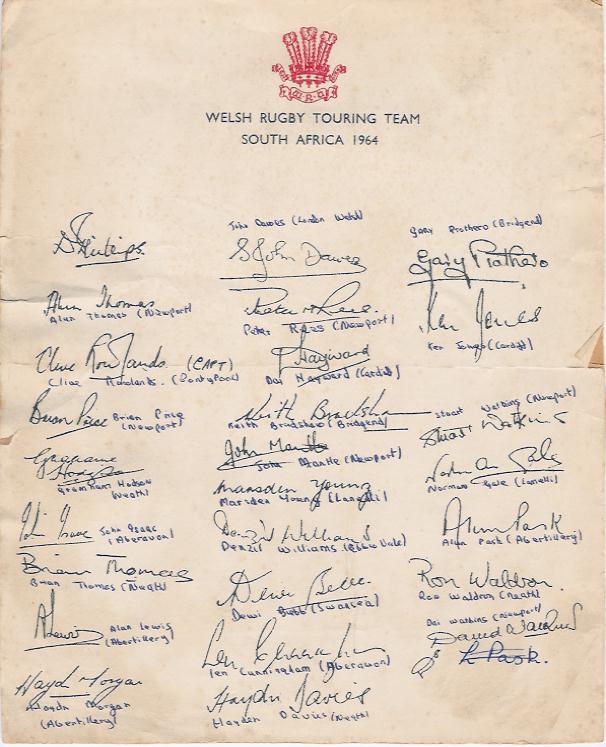 W.R.U.
WELSH RUGBY TOURING TEAM
SOUTH AFRICA 1964
D Phillips.
Alun Thomas
Alun Thomas (Newport)
Clive Rowlands (CAPT)
Clive Rowlands. (Pontypool)
Brian Price Brian Price
(Newport)
Grahame
Hodgson
Hodson
(Neath)
John Isaac John Isaac
(Aberavon)
Brian Thomas
Brian Thomas (Neath)
A Lewis Alan Lewis
(Abertillery)
Haydn Morgan
Haydn Morgan
(Abertillery)
John Dawes (London Welsh)
S John Dawes
Peter M Rees.
Peter Rees (Newport)
D Hayward
Dai Hayward (Cardiff)
Keith Bradshaw
Keith Bradshaw (Bridgend)
John Mantle
John Mantle (Newport)
Marsden Young
Marsden Young (Llanelli)
Denzil Williams
Denzil Williams (Ebbw Vale)
Dewi Bebb.
Dewi Bebb (Swansea)
Len Cunningham
Len Cunningham (Aberavon)
Haydn Davies
Hayden Davies (Neath)
Gary Prothero (Bridgend)
Gary Prothero
Ken Jones
Ken Jones (Cardiff)
Stuart Watkins (Newport)
Stuart Watkins
Norman Gale
Norman Gale (Llanelli)
Alun Pask
Alun Pask (Abertillery)
Ron Waldron.
Ron Waldron (Neath)
Dai Watkins (Newport)
David Watkins
Pask.